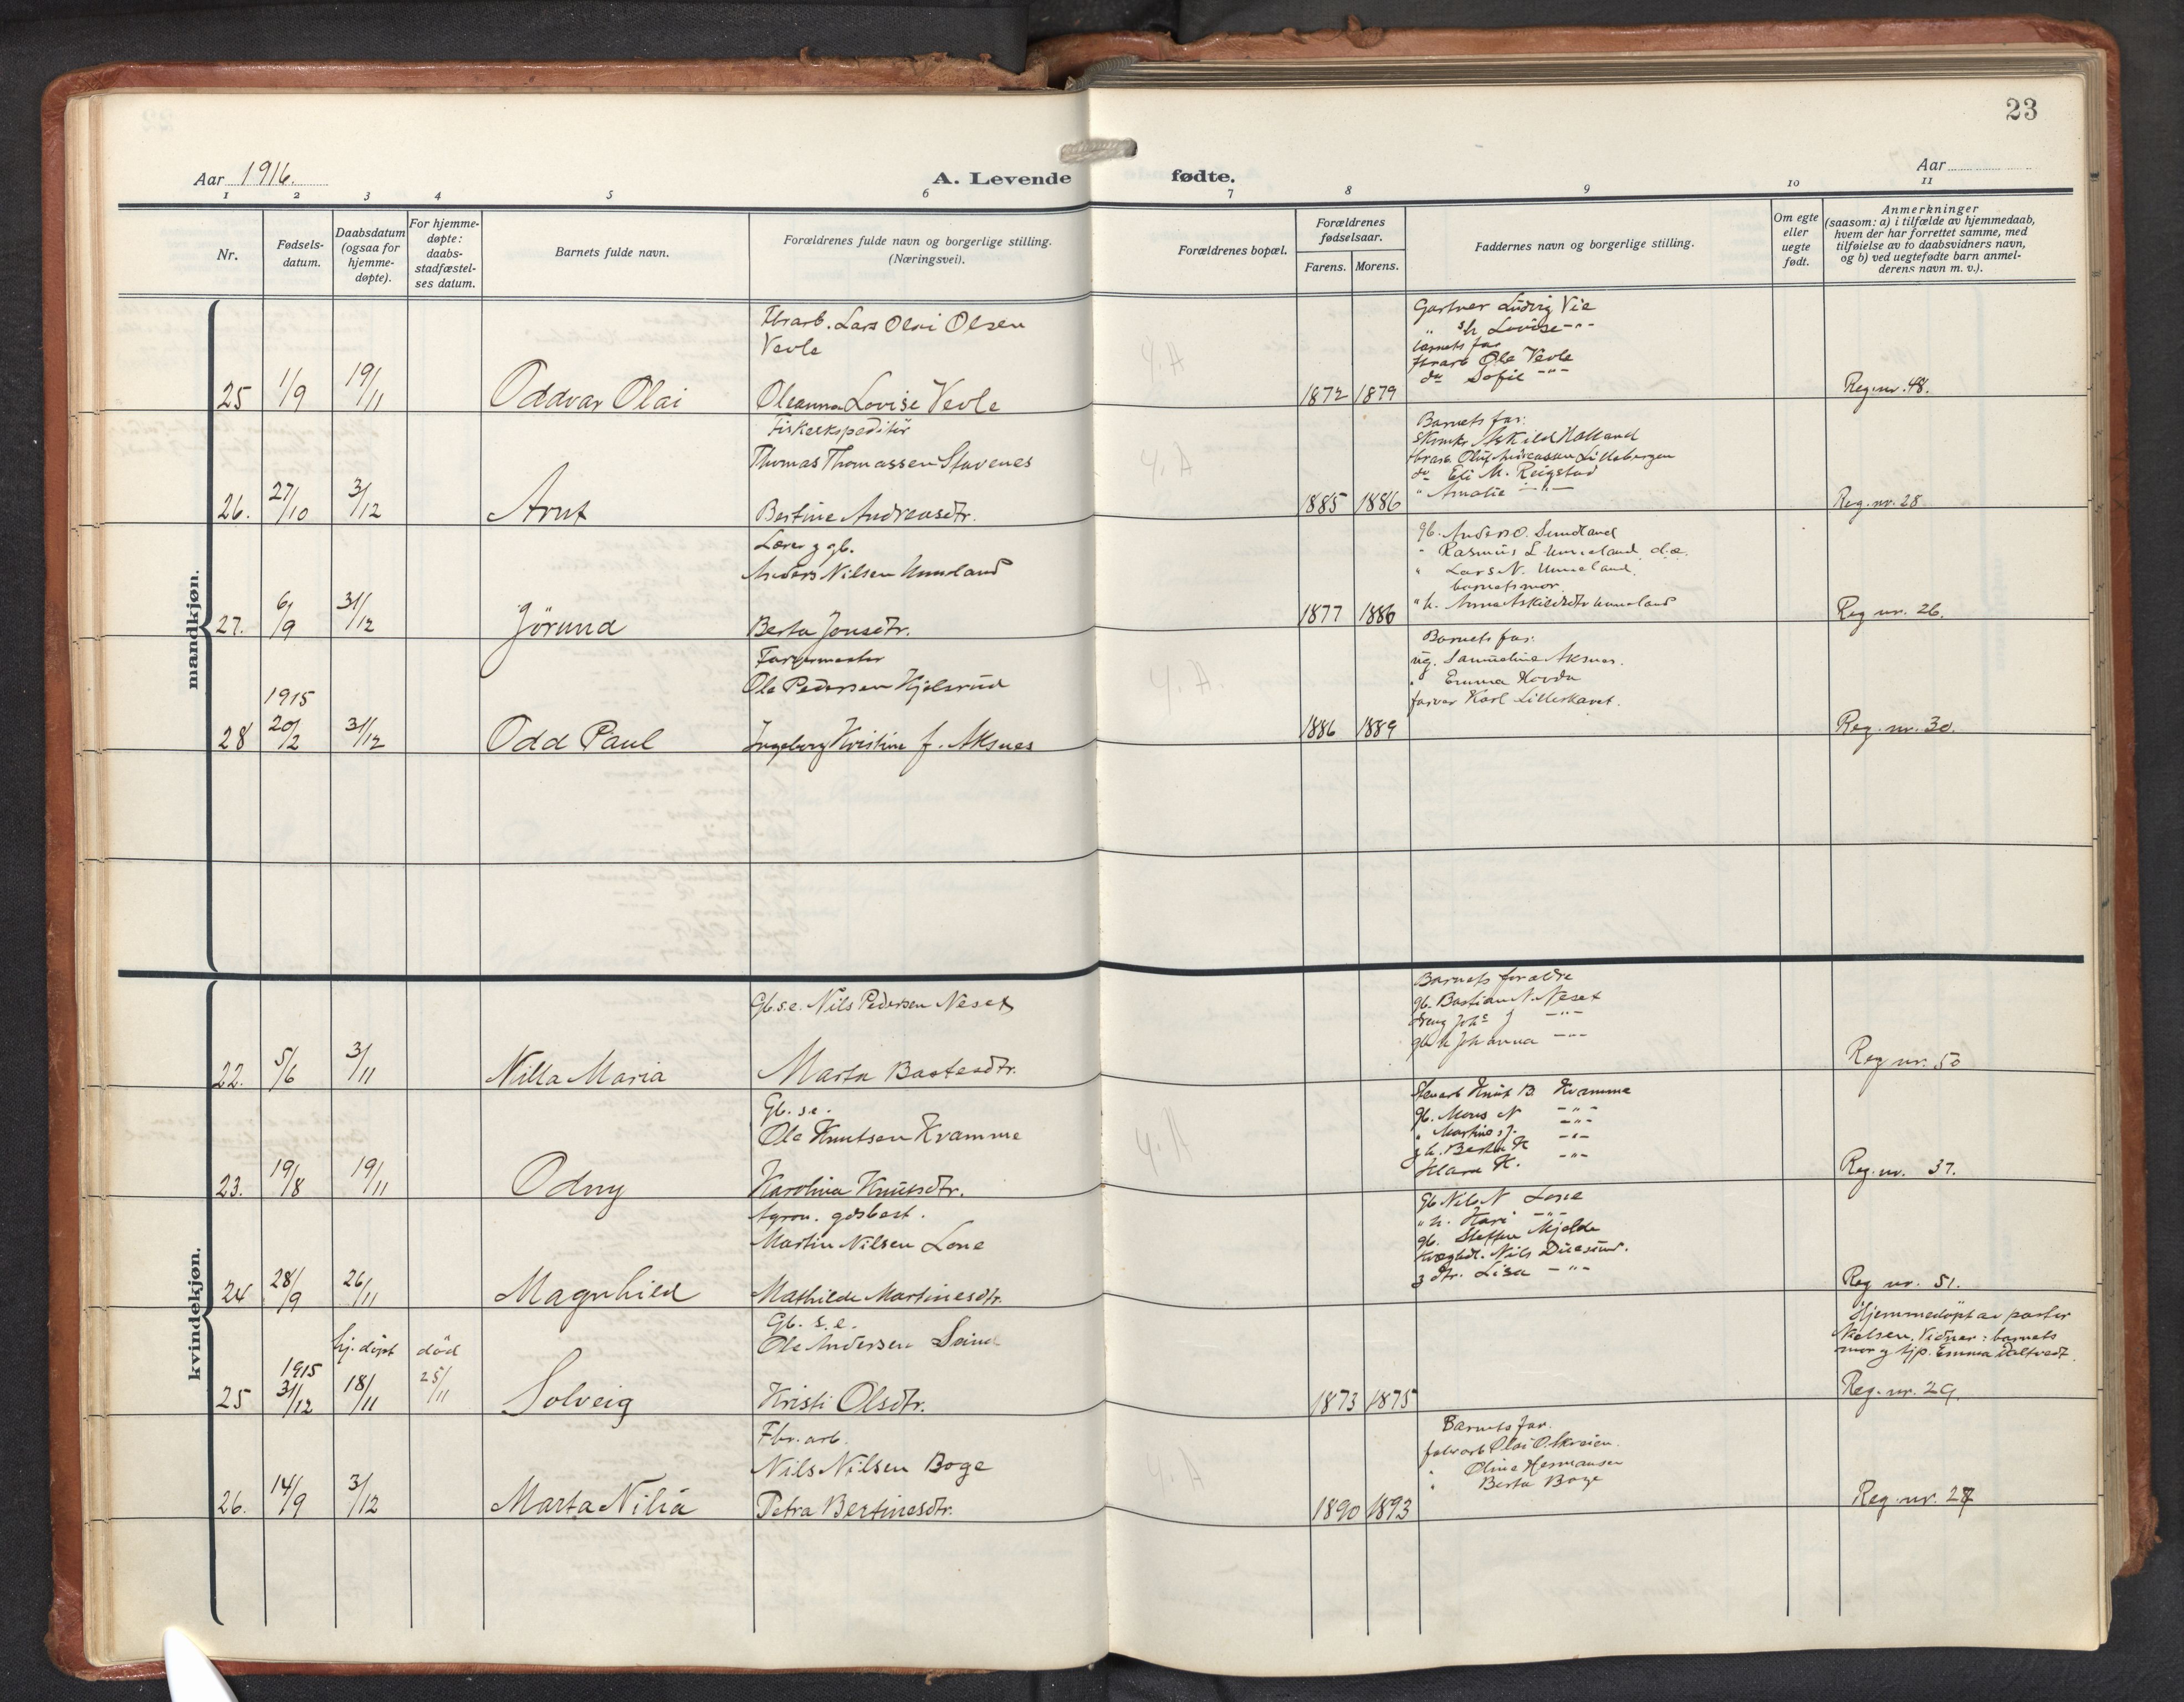 23
Aar 1916.
A. Levende fødte.
Aar
1 2 3 4 5 6 7 8 9 10 11
Nr.
Fødsels-
datum.
Daabsdatum
(ogsaa for
hjemme-
døpte).
For hjemme-
døpte:
daabs-
stadfæstel-
ses datum.
Barnets fulde navn.
Forældrenes fulde navn og borgerlige stilling.
(Næringsvei).
Forældrenes bopæl.
Forældrenes
fødselsaar.
Farens. Morens.
Faddernes navn og borgerlige stilling.
Om egte
eller
uegte
født.
Anmerkninger
(saasom: a) i tilfælde av hjemmedaab,
hvem der har forrettet samme, med
tilføielse av to daabsvidners navn,
og b) ved uegtefødte barn anmel-
derens navn m. v.).
mandkjøn.
25 1/9 19/11 Oddvar Olai
Fbrarb. Lars Olai Olsen
Vevle
Oleanna Lovise Vevle
4. A
1872 1879
Gartner Ludvig Vie
" h. Lovise -"-
barnets far
fbrarb Ole Vevle
do Sofie -"-
Reg. nr. 48.
26. 27/10 3/12 Arnt
Fiskekspeditør
Thomas Thomassen Stavenes
Bertine Andreasdtr.
4. A
1885 1886
Barnets far.
Askild Holland
fbrarb. Oluf Andreassen Lillebergen
do Eli M. Reigstad
" Amalie -"-
Reg. nr. 28
27. 6/9 31/12 Jørund
Lærer g gb.
Anders Nilsen Unneland
Berta Jonsdtr.
1877 1886
gb. Anders O. Sundland
" Rasmus L Unneland d.æ.
" Lars N. Unneland.
barnets mor.
" h. Anna Askildsdtr Unneland
Reg nr. 26.
28 1915 20/2 31/12 Odd Paul
Farvermester
Ole Pedersen Kjelsrud
Ingeborg Kristine f. Aksnes
4. A.
1886 1889
Barnets far.
ug. Samueline Aksnes.
" Emma Hovda
farver Karl Lilleskaret.
Reg. nr. 30.
kvindekjøn.
22. 5/6 3/11 Nilla Maria
Gb.s.e. Nils Pedersen Neset
Marta Bastesdtr.
Barnets foraldre
gb. Bastian N. Neset
dreng Johs J -"-
gb h Johanna -"-
Reg nr. 50
23. 19/8 19/11 Odny
Gb. s.e.
Ole Knutsen Kvamme
Karolina Knutsdtr.
4. A
Stuert Knut B. Kvamme
gb. Mons N -"-
" Martines J. -"-
g h. Berta K -"-
Klara K. -"-
Reg. nr. 37.
24 28/9 26/11 Magnhild
Agron. gdsbest.
Martin Nilsen Lone
Mathilde Martinesdtr.
Gb Nils N Lone
" h. Kari -"-
gb. Steffen Mjelde
Nils Duesund.
g dtr. Lisa -"-
Reg nr. 51.
25 1915 31/12 hj. døpt 18/11 død 25/11 Solveig
Gb. s.e.
Ole Andersen
Kristi Olsdtr.
1873 1875
Hjemmedøpt av pastor
Nielsen. Vidner: barnets
mor g hjp. Emma Daltveit.
Reg. nr. 29.
26. 14/9 3/12 Marta Nilia
Fbr. arb.
Nils Nilsen Boge
Petra Bertinesdtr.
4. A
1890 1893
Barnets far.
fabrarb Olai O. Skreien.
" Oline Hermansen
" Berta Boge
Reg. nr. 27